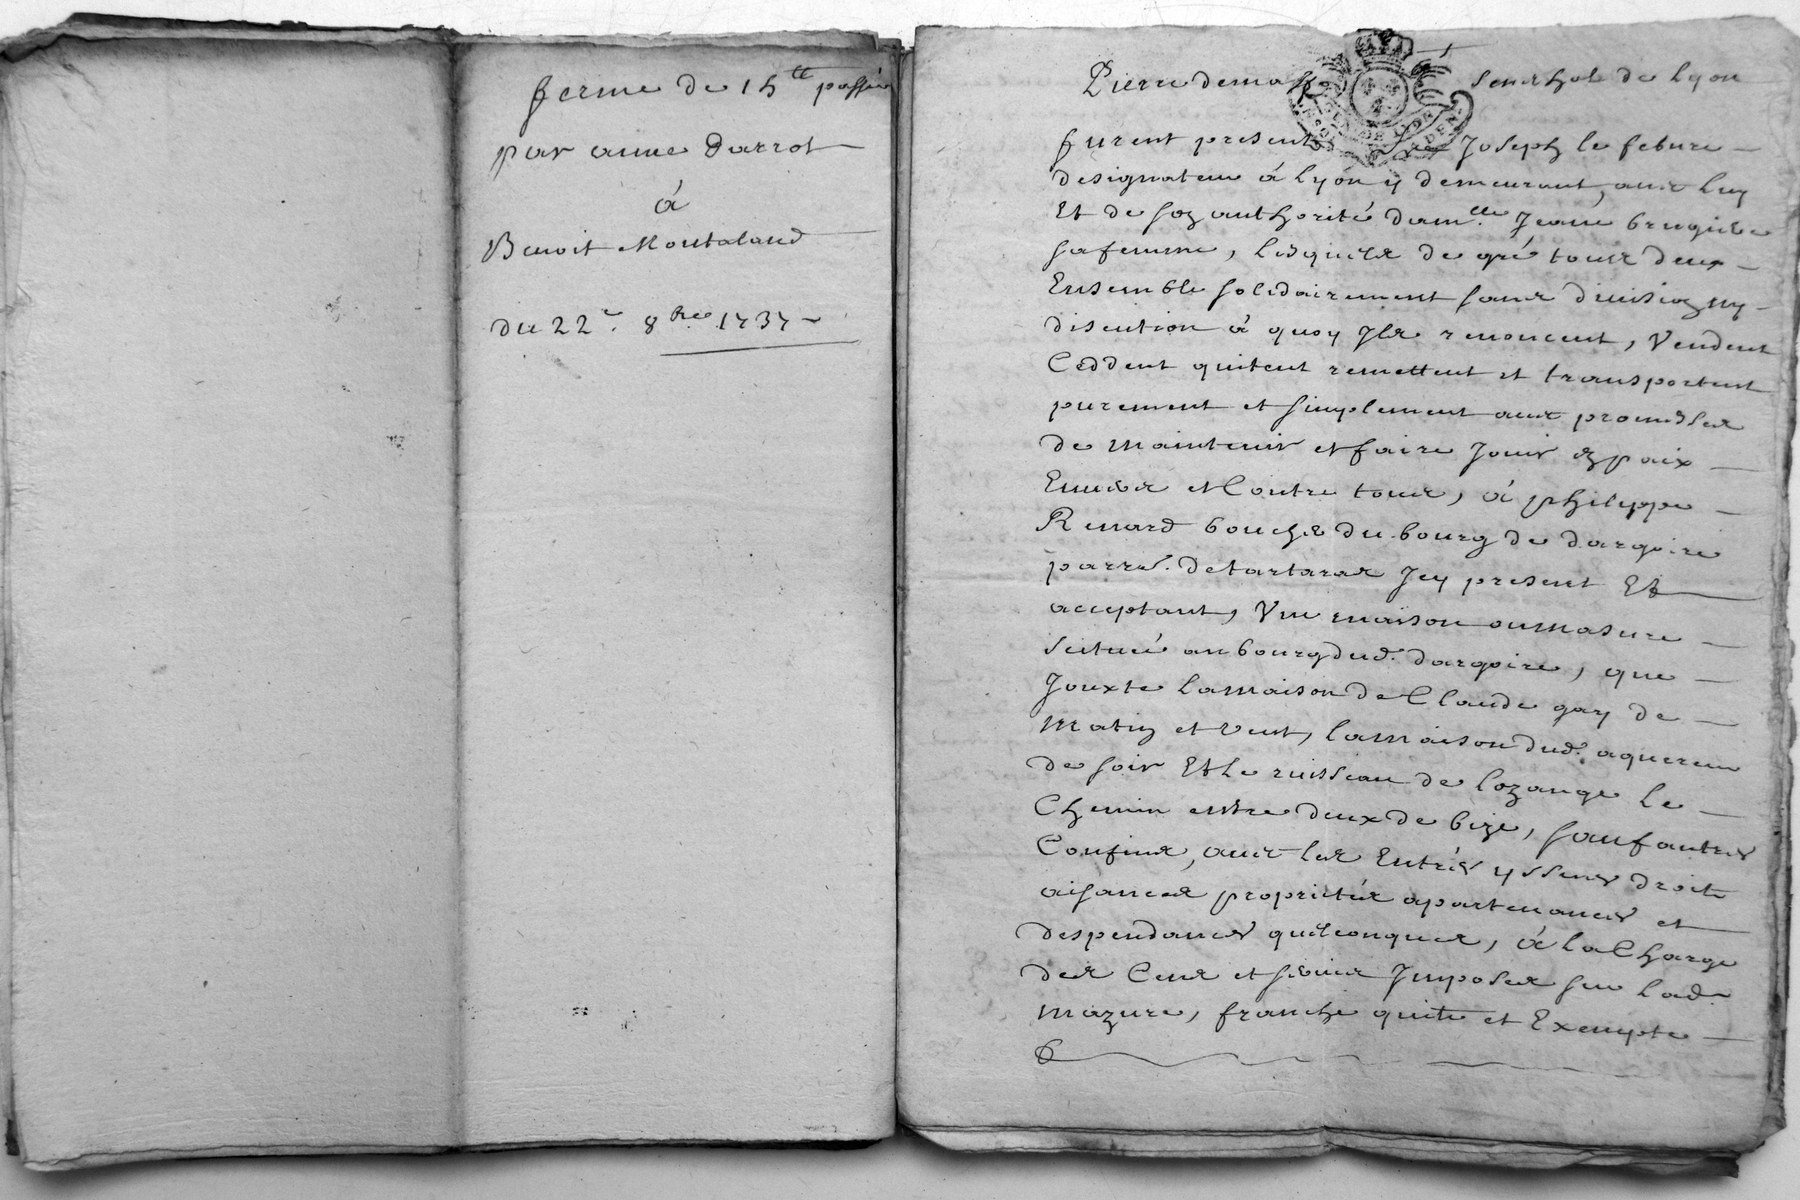 ferme de 15 ll passée
par anne Darrot
á
Benoit Montaland
du 22e. 8bre 1737
Pierre demass Senechal de Lyon
furent presents Sr Joseph le febure
designateur á lyon y demeurant, avec luy
Et de son authorité dam.lle Jeane brugiere
sa femme, lesquels de gré tous deux
Ensemble solidairement sans division ny
discution á quoy Ils renoncent, Vendent
Ceddent quitent remettent et transportent
purement et simplement avec promesses
de maintenir et faire Jouir en paix
Envers et Contre tous, á philippe
Renard boucher du bourg de dargoire
parrse. de tartaras Icy present Et
acceptant, Vne maison ou masure
scituée au bourg dud. dargoire, que
Jouxte la maison de Claude gay de
matin et vent, la maison dud. aquereur
de soir Et le ruisseau de lozange le
Chemin entre deux de bize, sauf autres
Confins, avec les Entrées yssues droits
aisances proprietés apartenances et
despendances quelconques, á la Charge
des Cens et servis Imposés sur lad.
mazure, franche quitte et Exempte